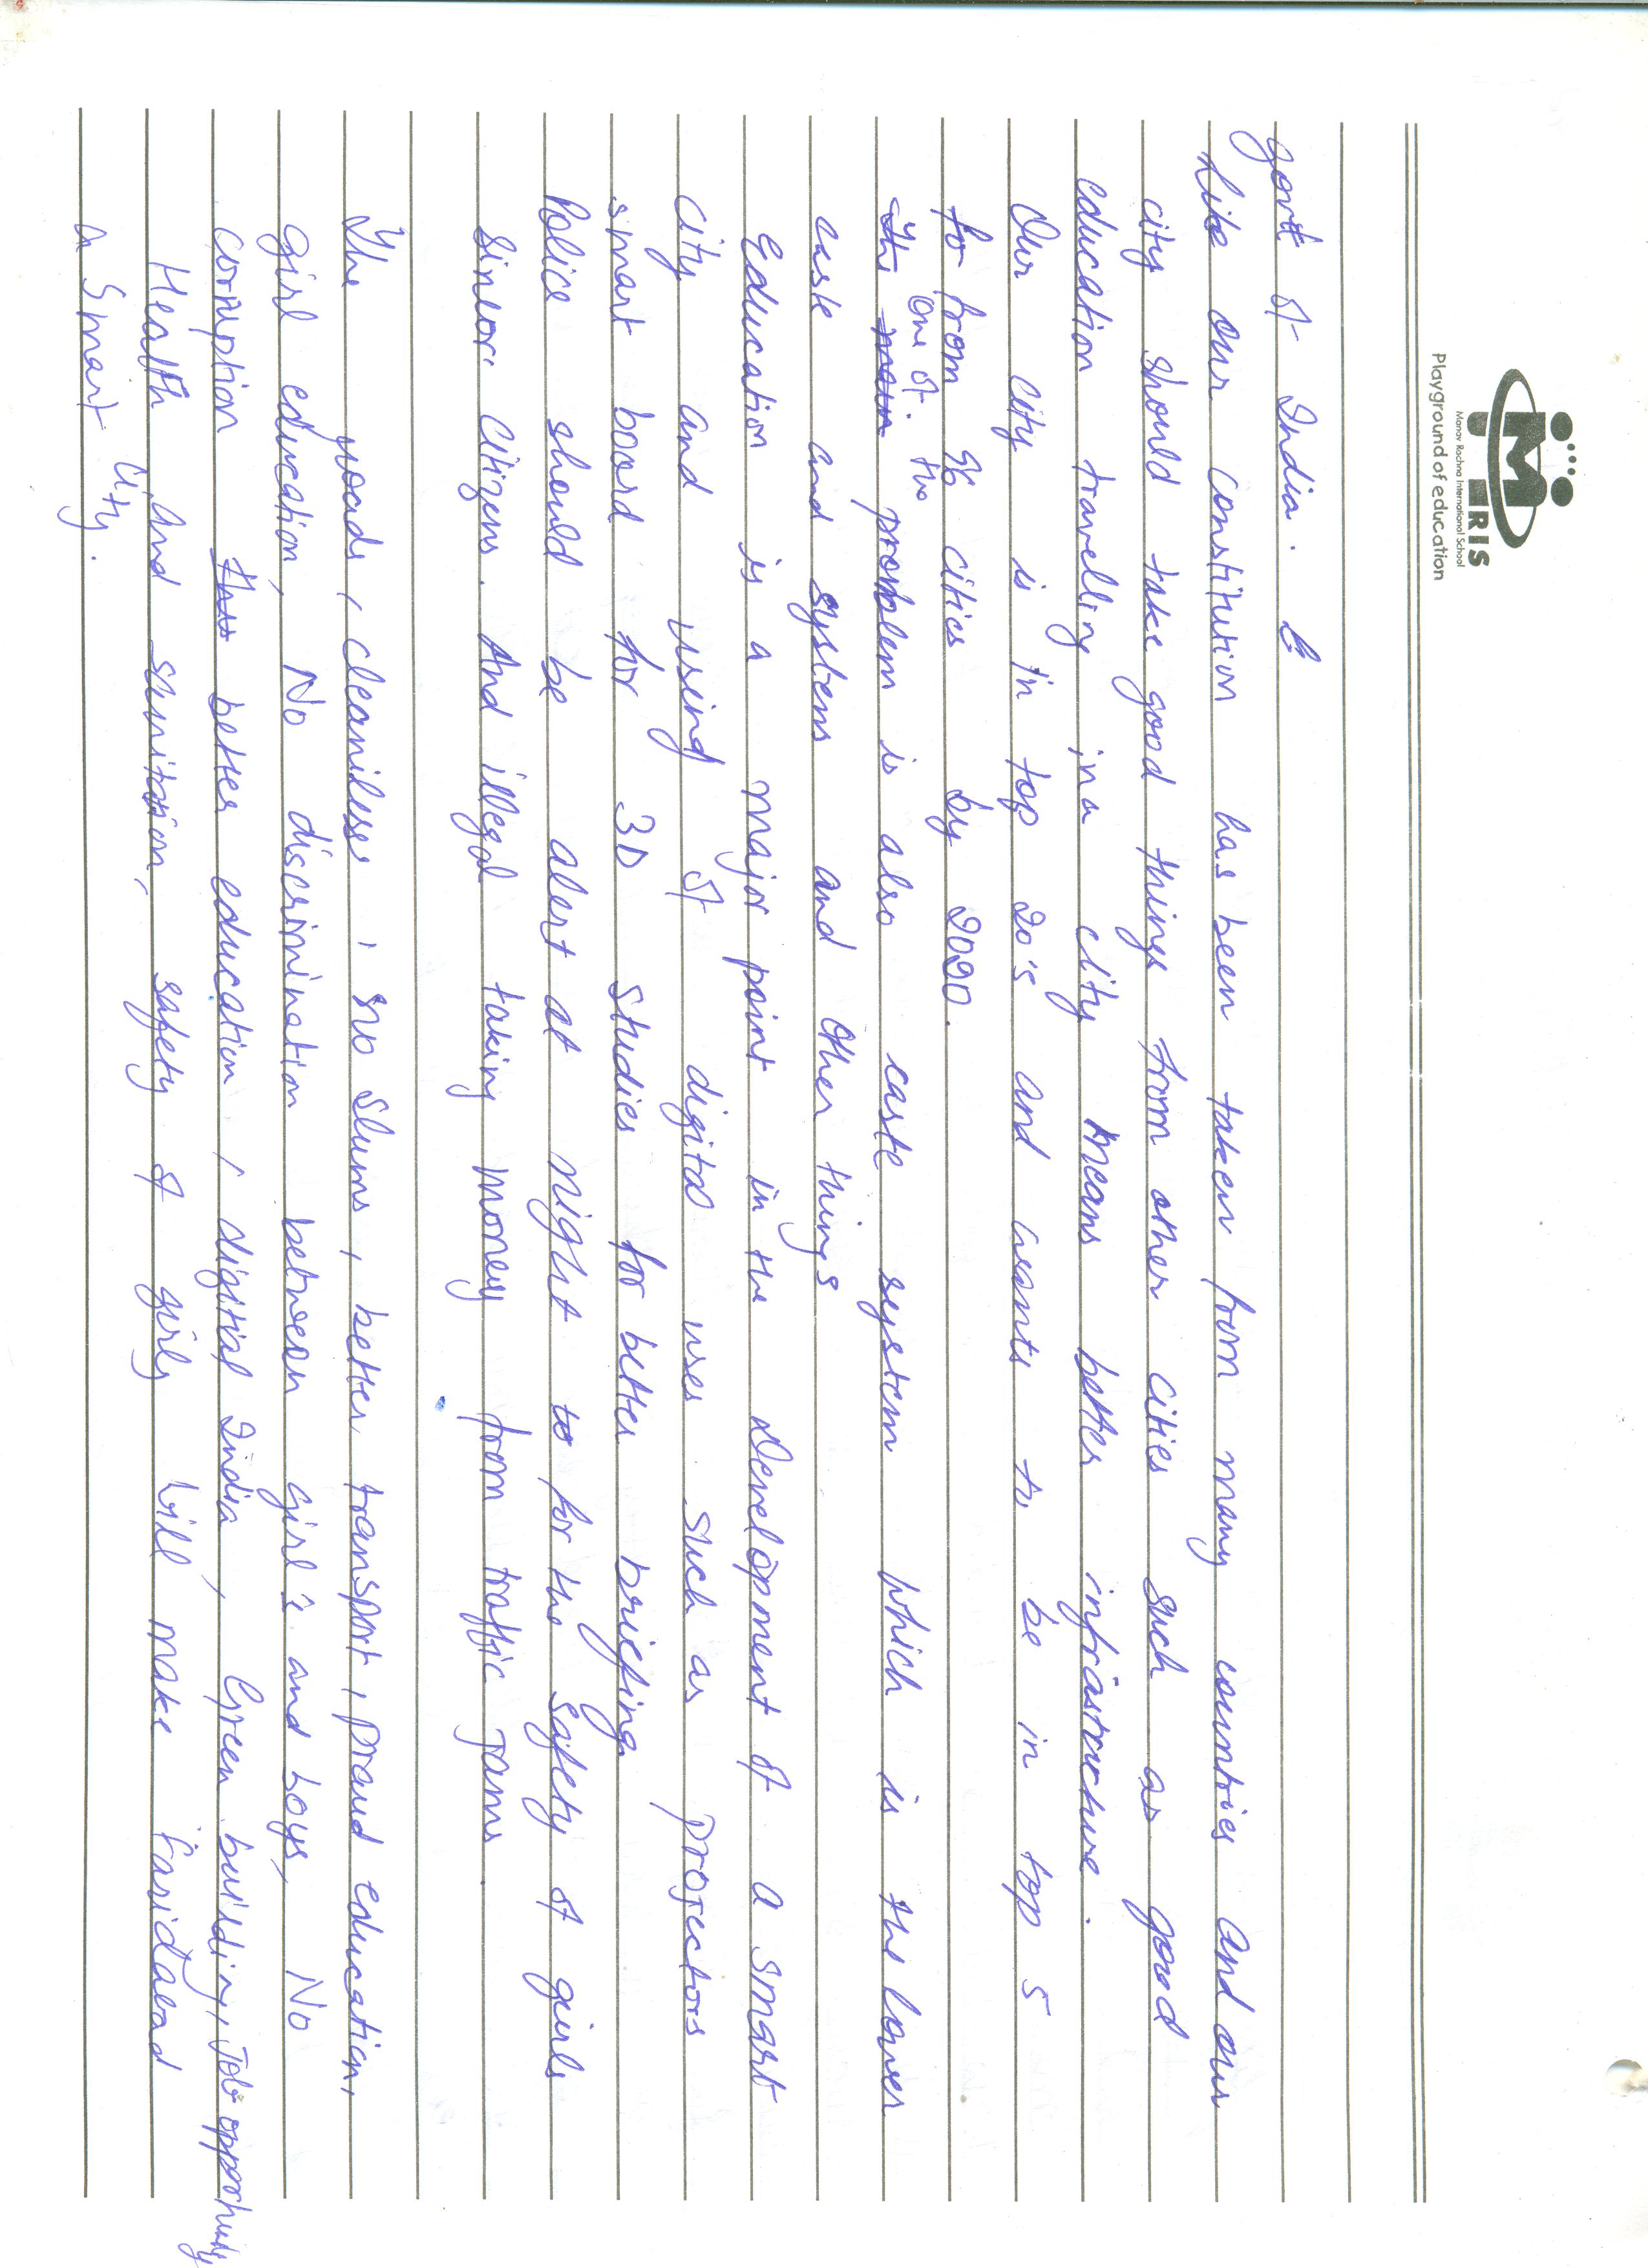 MRIS
Manav Rachna International School
Playground of education
govt of India.
like our constitution has been taken from many countries and our
city should take good things from other cities such as good
education travelling in a city means better infrastructure.
Our city is in top 20's and wants to be in top 5
to from 98 cities by 2020.
one of the
The main problem is also caste system which is the lower
caste and systems and other things
Education is a major point in the development of a smart
city and using of digital uses such as projectors
smart board for 3D studies for better briefing
Police should be alert at night to for the safety of girls
sineor citizens. And illegal taking money from traffic jams.
The roads, cleaniless, no slums, better transport, education,
girl education, No discrimination between girl's and boys, No
corruption better education, digitial India, Green building, Job opportunity
Health and sanitation, safety of girls will make Faridabad
a Smart City.